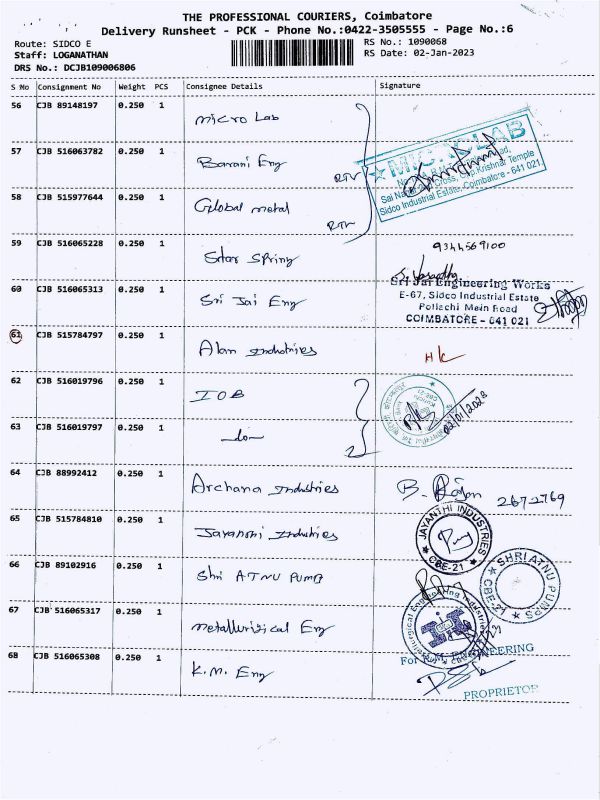 THE PROFESSIONAL COURIERS, Coimbatore
Delivery Runsheet - PCK - Phone No.:0422-3505555 - Page No.:6
Route: SIDCO E
RS No.: 1090068
Staff: LOGANATHAN
RS Date: 02-Jan-2023
DRS No.: DCJB109006806
S No Consignment No Weight PCS Consignee Details Signature
56 CJB 89148197 0.250 1 Micro Lab
MICRO LAB
57 CJB 516063782 0.250 1 Barani Eng
RTV
Sidco Industrial Estate, Coimbatore - 641 021
58 CJB 515977644 0.250 1 Global metal
RTV
59 CJB 516065228 0.250 1 Star Spring
9344569100
60 CJB 516065313 0.250 1 Sri Jai Eng
Sri Jai Engineering Works
E-67, Sidco Industrial Estate
Pollachi Main Road
COIMBATORE - 641 021
61 CJB 515784797 0.250 1 Alan Industries
62 CJB 516019796 0.250 1 IOB
2
02/01/2023
63 CJB 516019797 0.250 1 -do-
64 CJB 88992412 0.250 1 Archana Industries
B. Rajan 2672769
65 CJB 515784810 0.250 1 Jayanthi Industries
JAYANTHI INDUSTRIES
CBE-21
66 CJB 89102916 0.250 1 Shri ATNU PUMP
SHRI ATNU PUMPS
CBE-21
67 CJB 516065317 0.250 1 Metallurgical Eng
68 CJB 516065308 0.250 1 K.M. Eng
For K.M. ENGINEERING
PROPRIETOR